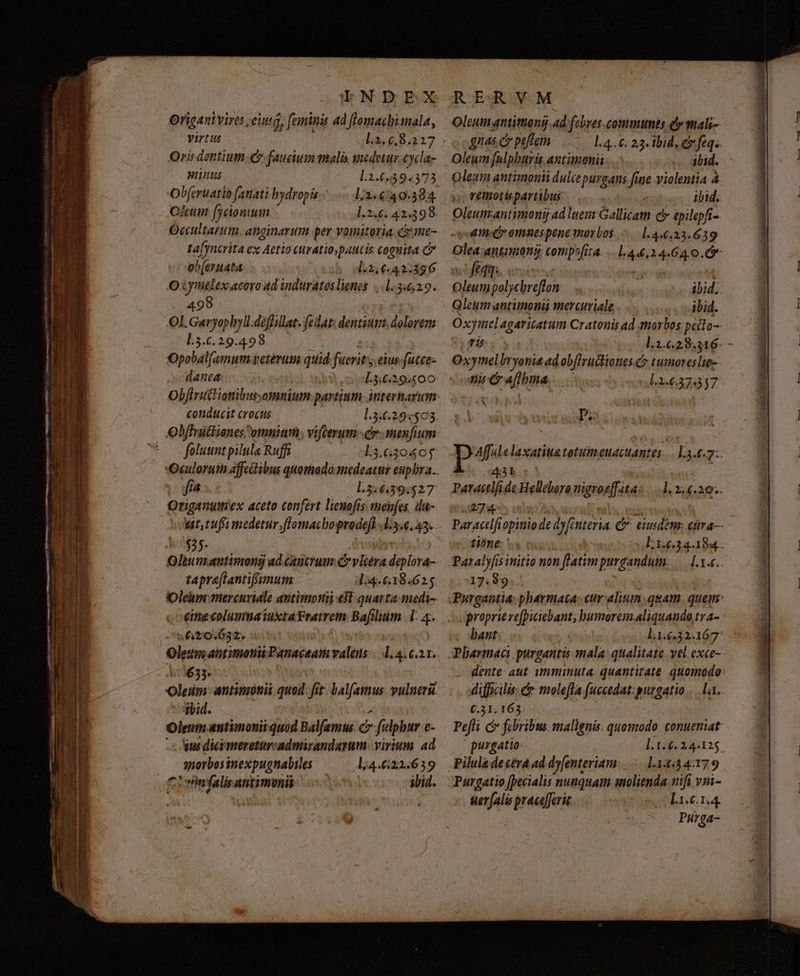 INDEX
Origani vires, eiusq́, seminis ad stomachi mala,
virtus l.2.c.8.227
Oris dentium & faucium malis medetur cycla-
minus l.2.c.39.373
Observatio sanati hydropis l.2.c.40.384
Oleum scionium l.2.c.42.398
Occultarum anginarum per vomitoria & me-
tasyncrita ex Aetio curatio, paucis cognita &
observata l.2.c.42.396
Oxymelex acoro ad induratos lienes l.3.c.29.
498
Ol. Garyophyll. destillat. sedat dentium dolorem
l.3.c.29.498
Opobalsamum veterum quid fuerit, eius succe-
danea l.3.c.29.500
Obstructionibus omnium partium internarum
conducit crocus l.3.c.29.503
Obstructiones omnium, viscerum & mensium
soluunt pilula Ruffi l.3.c.30.505
Oculorum affectibus quomodo medeatur euphra-
sia l.3.c.39.527
Origanum ex aceto confert lienosis menses du-
cit, tussi medetur, stomacho prodest l.3.c.43.
535.
Oleum antimonij ad cancrum & vlcera deplora-
ta praestantissimum l.4.c.18.625
Oleum mercuriale antimonii est quarta medi-
cinae columna iuxta Fratrem Basilium l. 4.
c.20.632.
Oleum antimonii Panaceam valens l.4.c.21.
633.
Oleum antimonii quod fit balsamus vulnerū
ibid.
Oleum antimonii quod Balsamus & sulphur e-
ius dici meretur admirandarum virium ad
morbos inexpugnabiles l.4.c.22.639
antimonii ibid.
RERVM
Oleum antimonij ad febres communes & mali-
gnas & pestem l.4.c.23.ibid. & seq.
Oleum sulphuris antimonii ibid.
Oleum antimonii dulce purgans sine violentia à
remotis partibus ibid.
Oleum antimonij ad luem Gallicam & epilepsi-
am & omnes pene morbos l.4.c.23.639
Olea antimonij composita l.4.c.24.640. &
seqq.
Oleum polychreston ibid.
Oleum antimonii mercuriale ibid.
Oxymel agaricatum Cratonis ad morbos pecto-
ris l.2.c.28.316
Oxymel bryoniae ad obstructiones & tumores lie-
nis & asthma l.2.c.37.357
P.
PAssulae laxatiuae totum euacuantes l.3.c.7.
431
Paracelsi de Helleboro nigro effata l.2.c.20.
274
Paracelsi opinio de dysenteria & eiusdem cura-
tione l.1.c.34.184
Paralysis initio non statim purgandum l.1.c.
17.89
Purgantia pharmaca cur alium quam quem
proprie respiciebant, humorem aliquando tra-
hant l.1.c.32.167
Pharmaci purgantis mala qualitate vel exce-
dente aut imminuta quantitate quomodo
difficilis & molesta succedat purgatio l.1.
c.31.163
Pesti & febribus malignis quomodo conueniat
purgatio l.1.c.24.125
Pilula de cera ad dysenteriam l.1.c.34.179
Purgatio specialis nunquam molienda nisi vni-
uersalis praecesserit l.1.c.1.4
Purga-